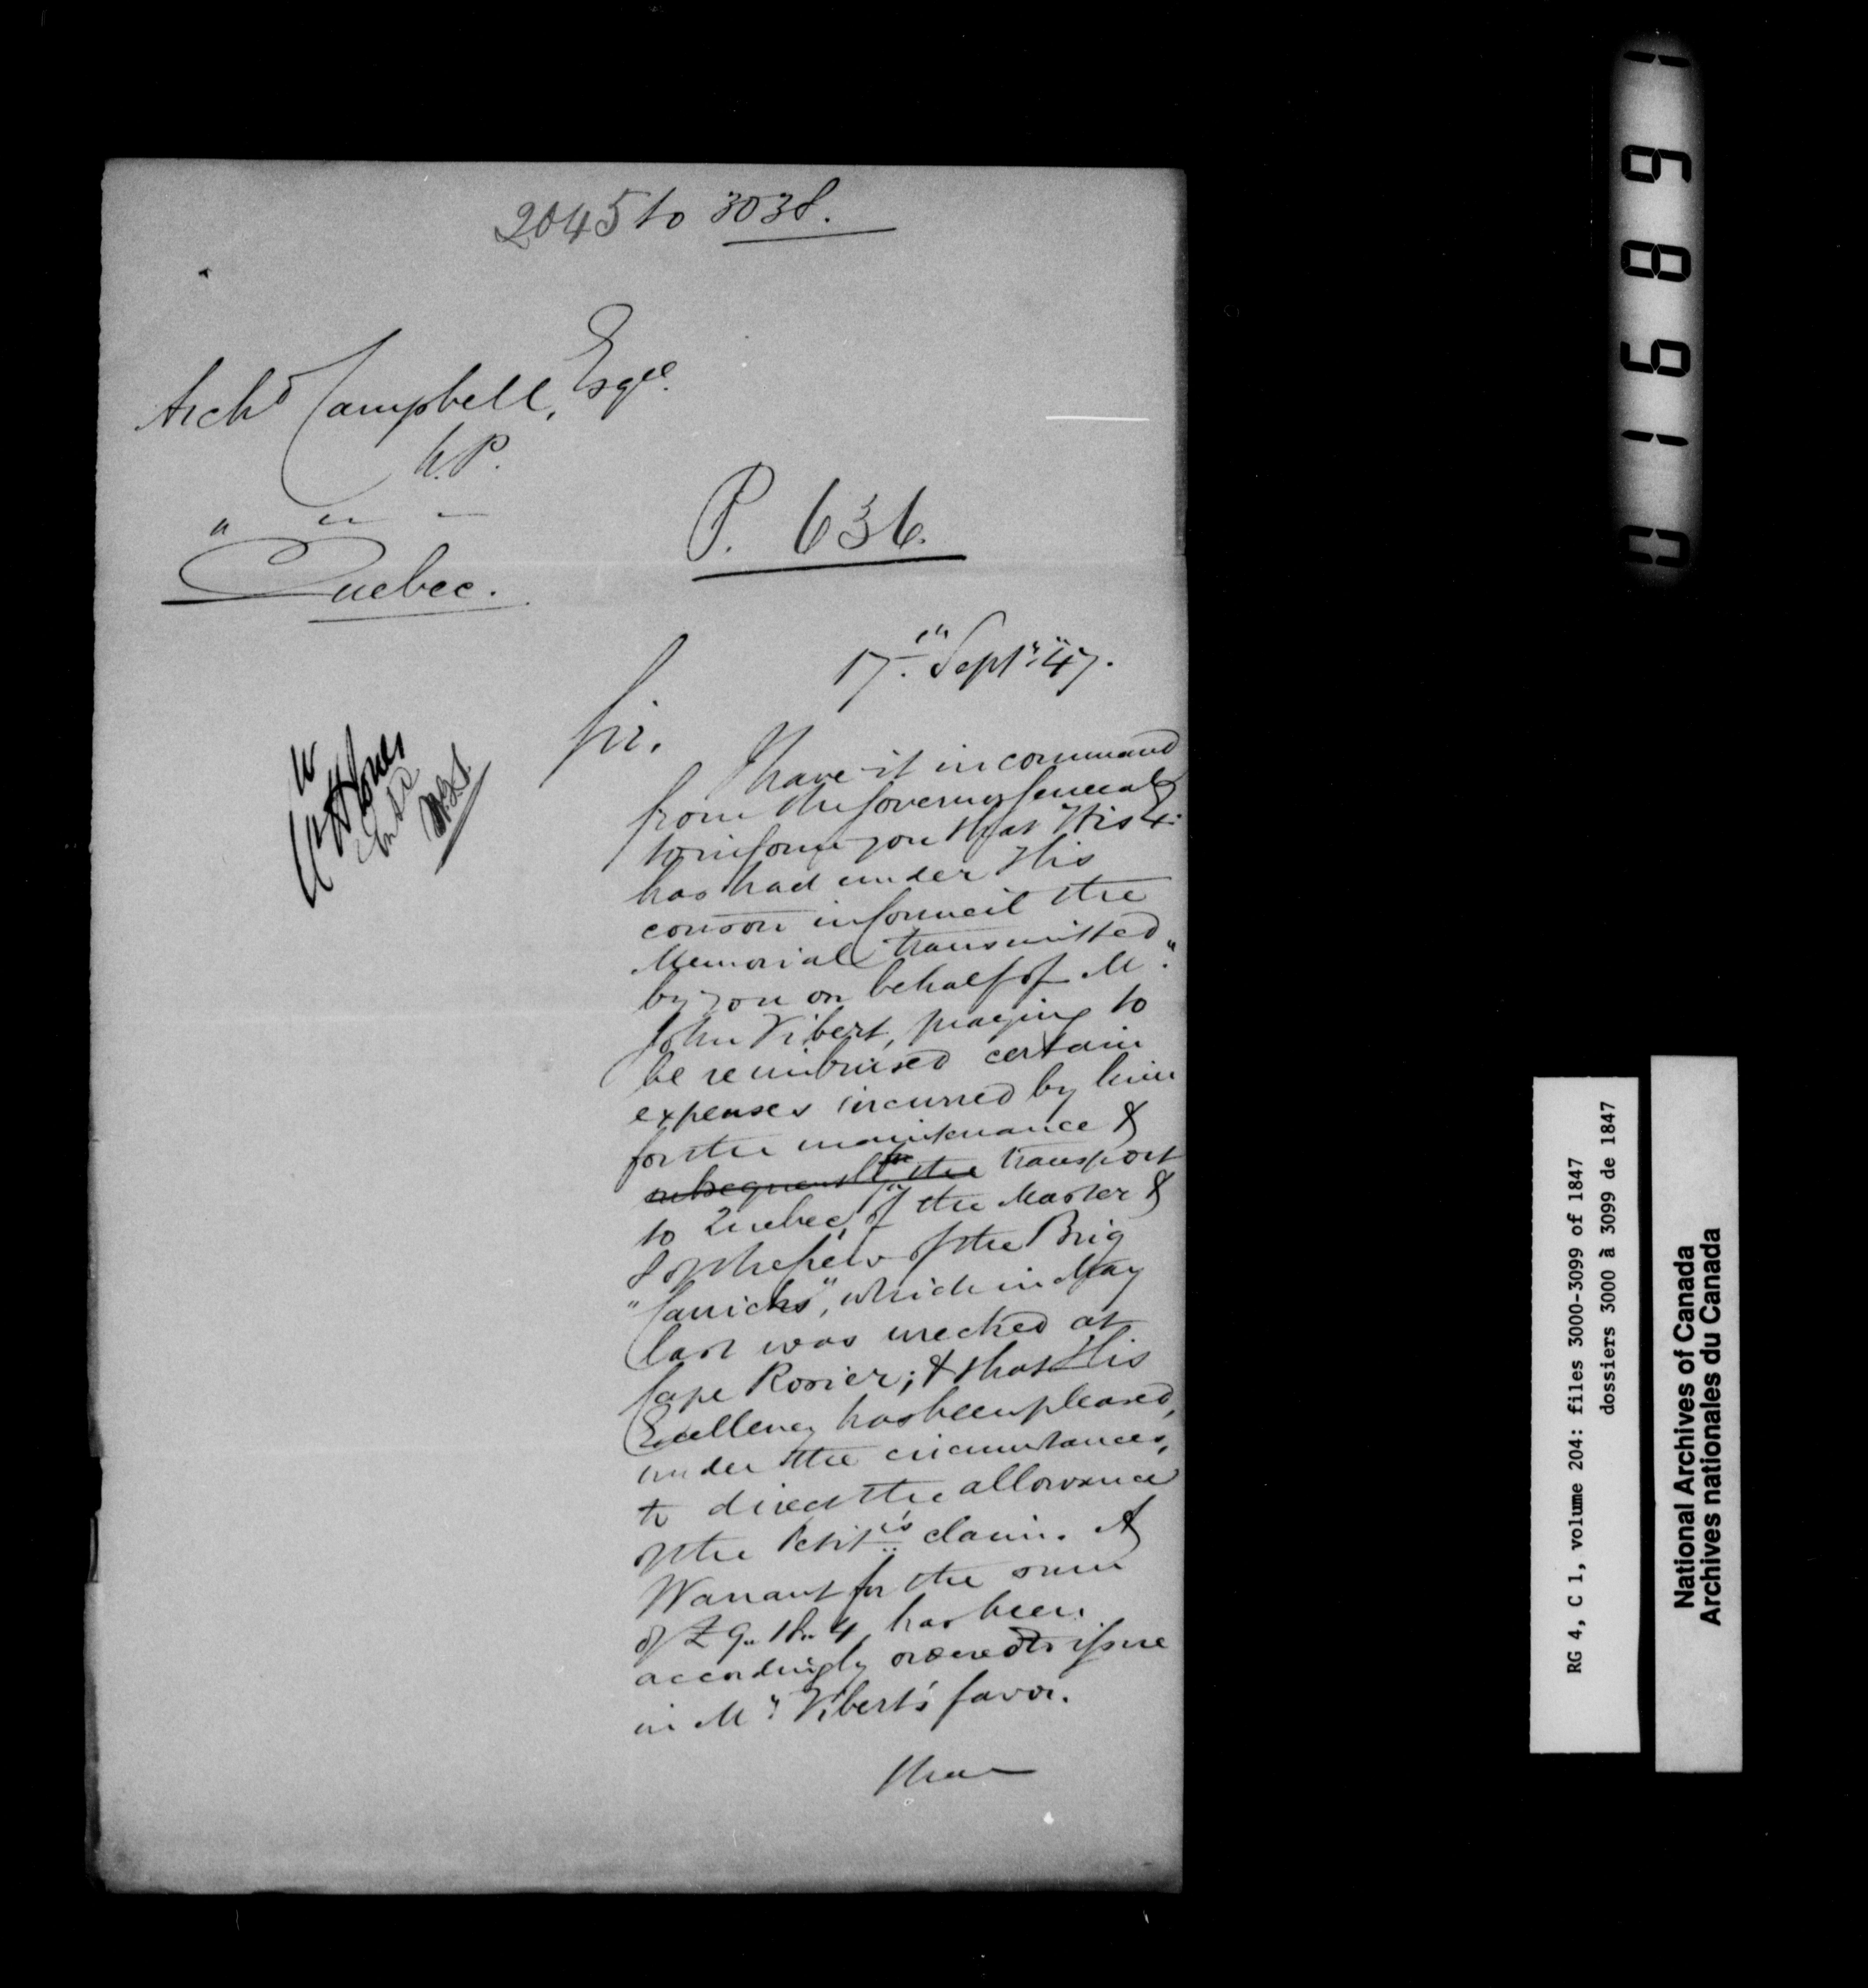 2045 to 3038.
Archd Campbell, Esqre.
N.P.
" " "
Quebec.
P. 636.
17th Septr. 47.
Sir.
I have it in command
from the Governor General
to inform you that His Ex:
has had under His
conson in Council the
Memorial transmitted
by you on behalf of Mr.
John Vibert, praying to
be reimbursed certain
expenses incurred by him
for the maintenance &
subsequently the for the transport
to Quebec, of the Master &
of the Crew of the Brig
which in May
last was wrecked at
Cape Rosier; & that His
Excellency has been pleased,
under the circumstances,
to direct the allowance
of the Petit:r's claim. A
Warrant for the sum
of £ 9.. 18.. 4 has been
accordingly ordered to issue
in Mr. Vibert's favor.
I have
016891
RG 4, C 1, volume 204: files 3000-3099 of 1847
dossiers 3000 à 3099 de 1847
National Archives of Canada
Archives nationales du Canada